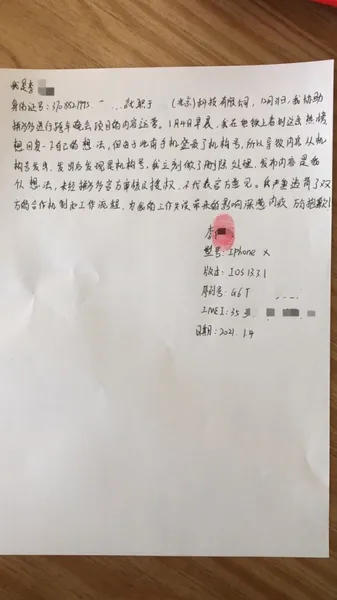 我是李
身份证号：3708821995 就职于 （北京）科技有限公司，12月31日，我协助
拼多多进行跨年晚会项目的内容运营。1月4日早晨，我在地铁上看到这条热榜
想回复一下自己的想法，但由于此前手机登录了机构号，所以导致内容从机
构号发出，发明后发现是机构号，我立刻做了删除处理，发布内容是我
想法，未经拼多多官方审核及授权，不代表官方意见。我严重违背了双
方的合作机制和工作流程，为我的工作失误带来的影响深感内疚，万分抱歉！
李
型号：Iphone X
版本：IOS 13.3.1
序列号：G6T
IMEI：35
日期：2021.1.4